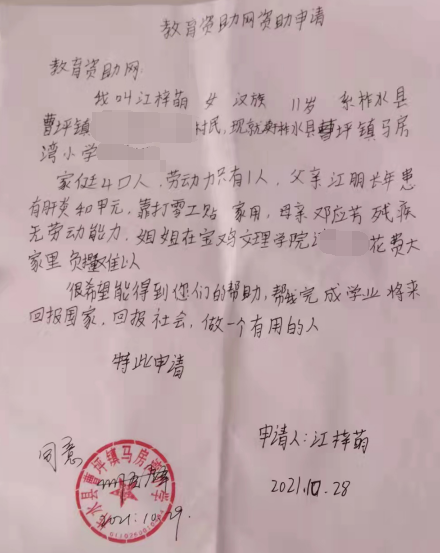 教育资助网资助申请
教育资助网:
我叫江梓萌 女 汉族 11岁 系柞水县
曹坪镇 村民,现就读柞水县曹坪镇马房
湾小学
家住4口人,劳动力只有1人,父亲江朋长年患
有肝炎 ,靠打零工贴 家用,母亲邓应芳 残疾
无劳动能力,姐姐在宝鸡文理学院 花费大
家里负担
很希望能得到您们的帮助,帮我完成学业 将来
回报国家,回报社会,做一个有用的人
特此申请
同意
申请人:江梓萌
2021.10.28
柞水县曹坪镇马房湾小学
2021.10.29.